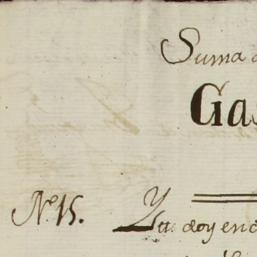 Suma
Gas
Nº. 15. Ytt. doy en d